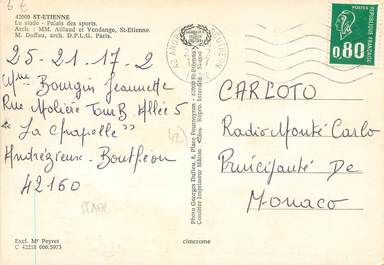 6€
42000 ST-ETIENNE
Le stade - Palais des sports.
Arch. : MM. Aillaud et Vendange, St-Etienne.
M. Duffau, arch. D.P.L.G. Paris.
25-21-17-2
Mme Bourgin Jeannette
Rue Molière Tour B Allée 5
"La Chapelle"
Andrézieux-Bouthéon
42160
STADE
Excl. Mr Peyret
C 42218 606.5975
(42)
Photo Georges Duffieu, 8, Place Fourneyron - 42000 St-Etienne
Combier Imprimeur Mâcon
Repro. Interdite
cimcrome
FRANÇAISE
0,80
POSTES
CARLOTO
Radio Monté Carlo
Principauté De
Monaco